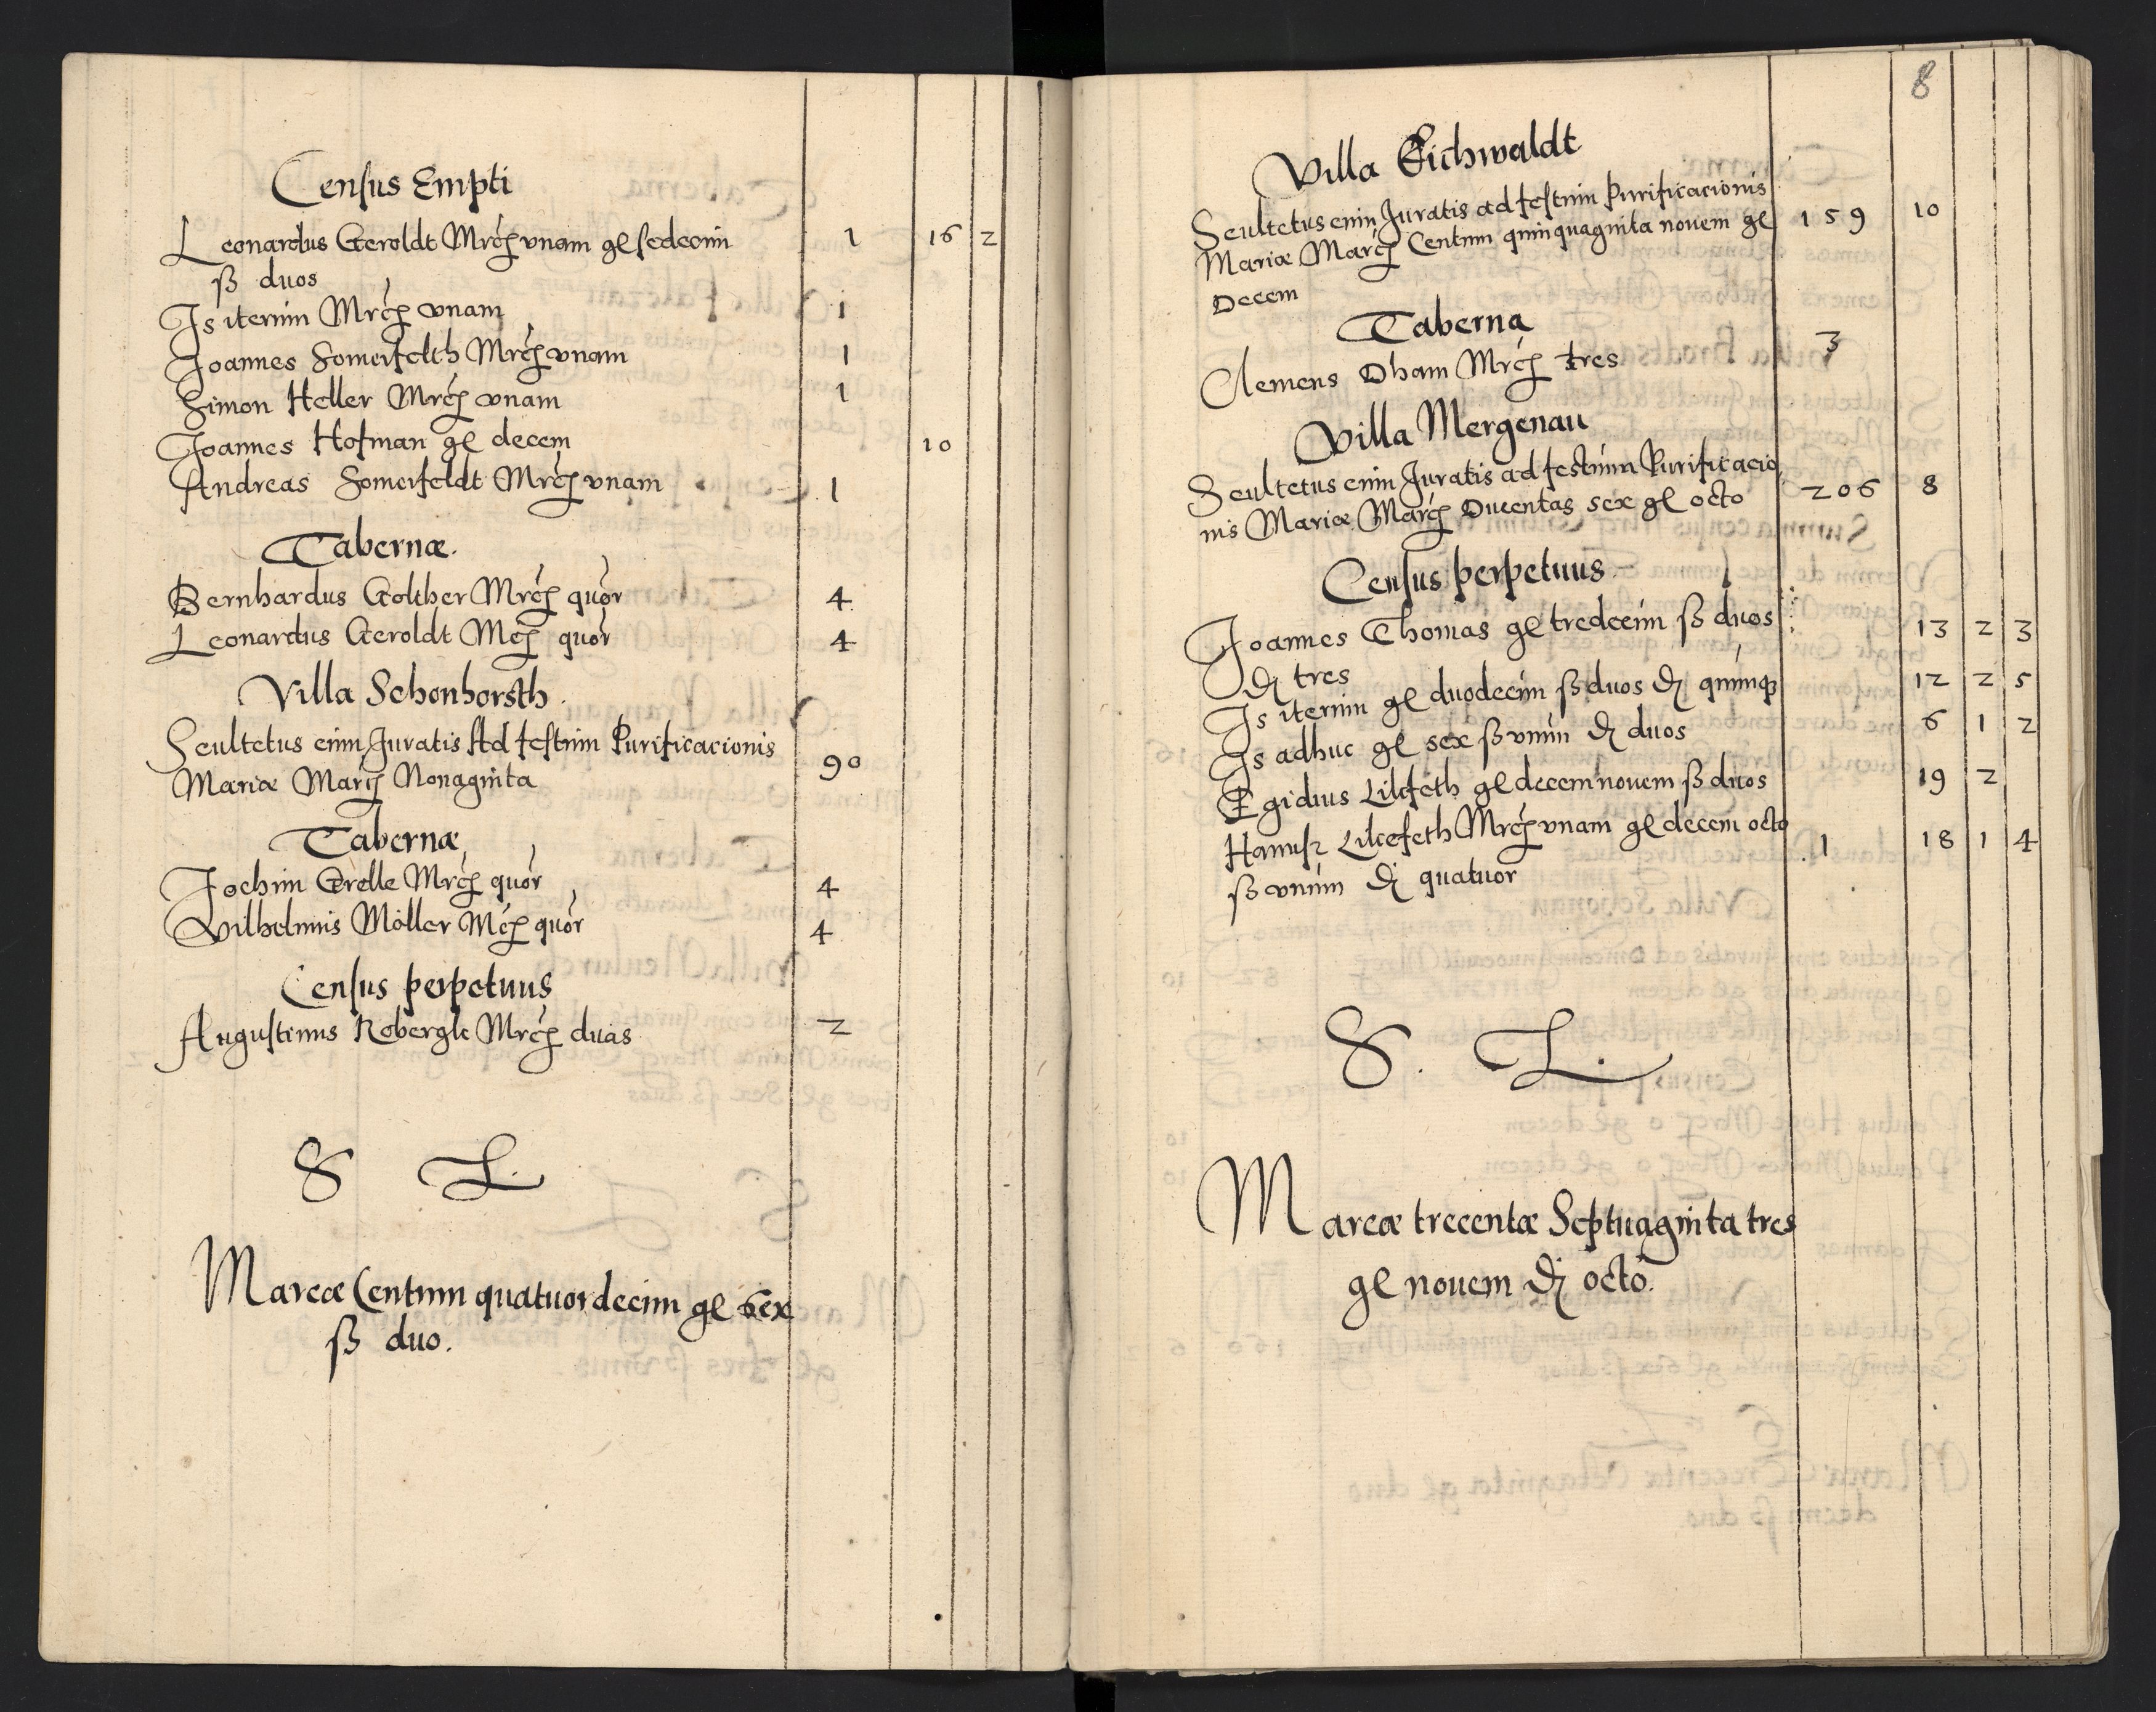 Census Empti
Leonardus Geroldt Mrcʒ vnam gl sedecim 1 16 2
ß duos
Is iterum Mrcʒ vnam 1
Joannes Somerfelth Mrcʒ vnam 1
Simon Heller Mrcʒ vnam 1
Joannes Hofman gl decem 10
Andreas Somerfeldt Mrcʒ vnam 1
Tabernæ.
Bernhardus Golther Mrcʒ quor 4
Leonardus Geroldt Mcʒ quor 4
Villa Schonhorsth.
Scultetus cum Juratis Ad festum Purificacionis
Mariæ Marcʒ Nonaginta 90
Tabernæ
Jochim Grelle Mrcʒ quor 4
Wilhelmus Möller Mcʒ quor 4
Census perpetuus
Augustinus Robergk Mrcʒ duas 2
S L.
Marcæ Centum quatuordecim gl sex
ß duo.
8
Villa Eichwaldt
Scultetus cum Juratis ad festum Purificacionis
Mariæ Marcʒ Centum quinquaginta nouem gl 159 10
Decem
Taberna
Clemens Dham Mrcʒ tres 3
Villa Mergenau
Scultetus cum Juratis ad festum Purificacio
nis Mariæ Marcʒ Ducentas sex gl octo 206 8
Census perpetuus
Joannes Thomas gl tredecim ß duos 13 2 3
₰ tres
Is iterum gl duodecim ß duos ₰ quinqʒ 12 2 5
Is adhuc gl sex ß vnum ₰ duos 6 1 2
Egidius Lilefeth gl decem nouem ß duos 19 2
Hanusz Lilcefeth Mrcʒ vnam gl decem octo 1 18 1 4
ß vnum ₰ quatuor
S. L.
Marcæ trecentæ Septuaginta tres
gl nouem ₰ octo.